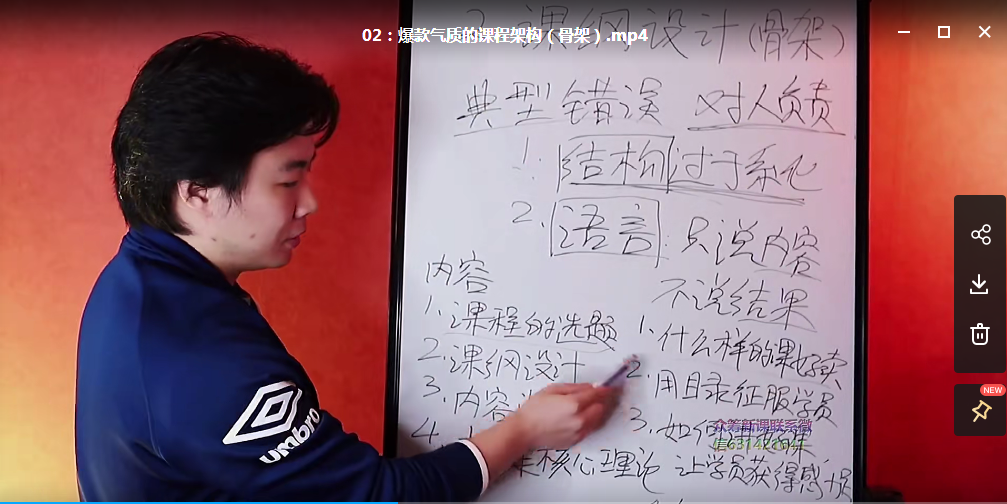 02：爆款气质的课程架构（骨架）.mp4
2.课纲设计(骨架)
典型错误 对人负责
1.结构过于系化
2.语言 只说内容
不说结果
内容
1.课程的选题
2.课纲设计
3.内容
4.
核心理论
1.什么样的课好卖
2.用目录征服学员
3.如何
让学员获得感
众筹新课联系微
umbro
NEW